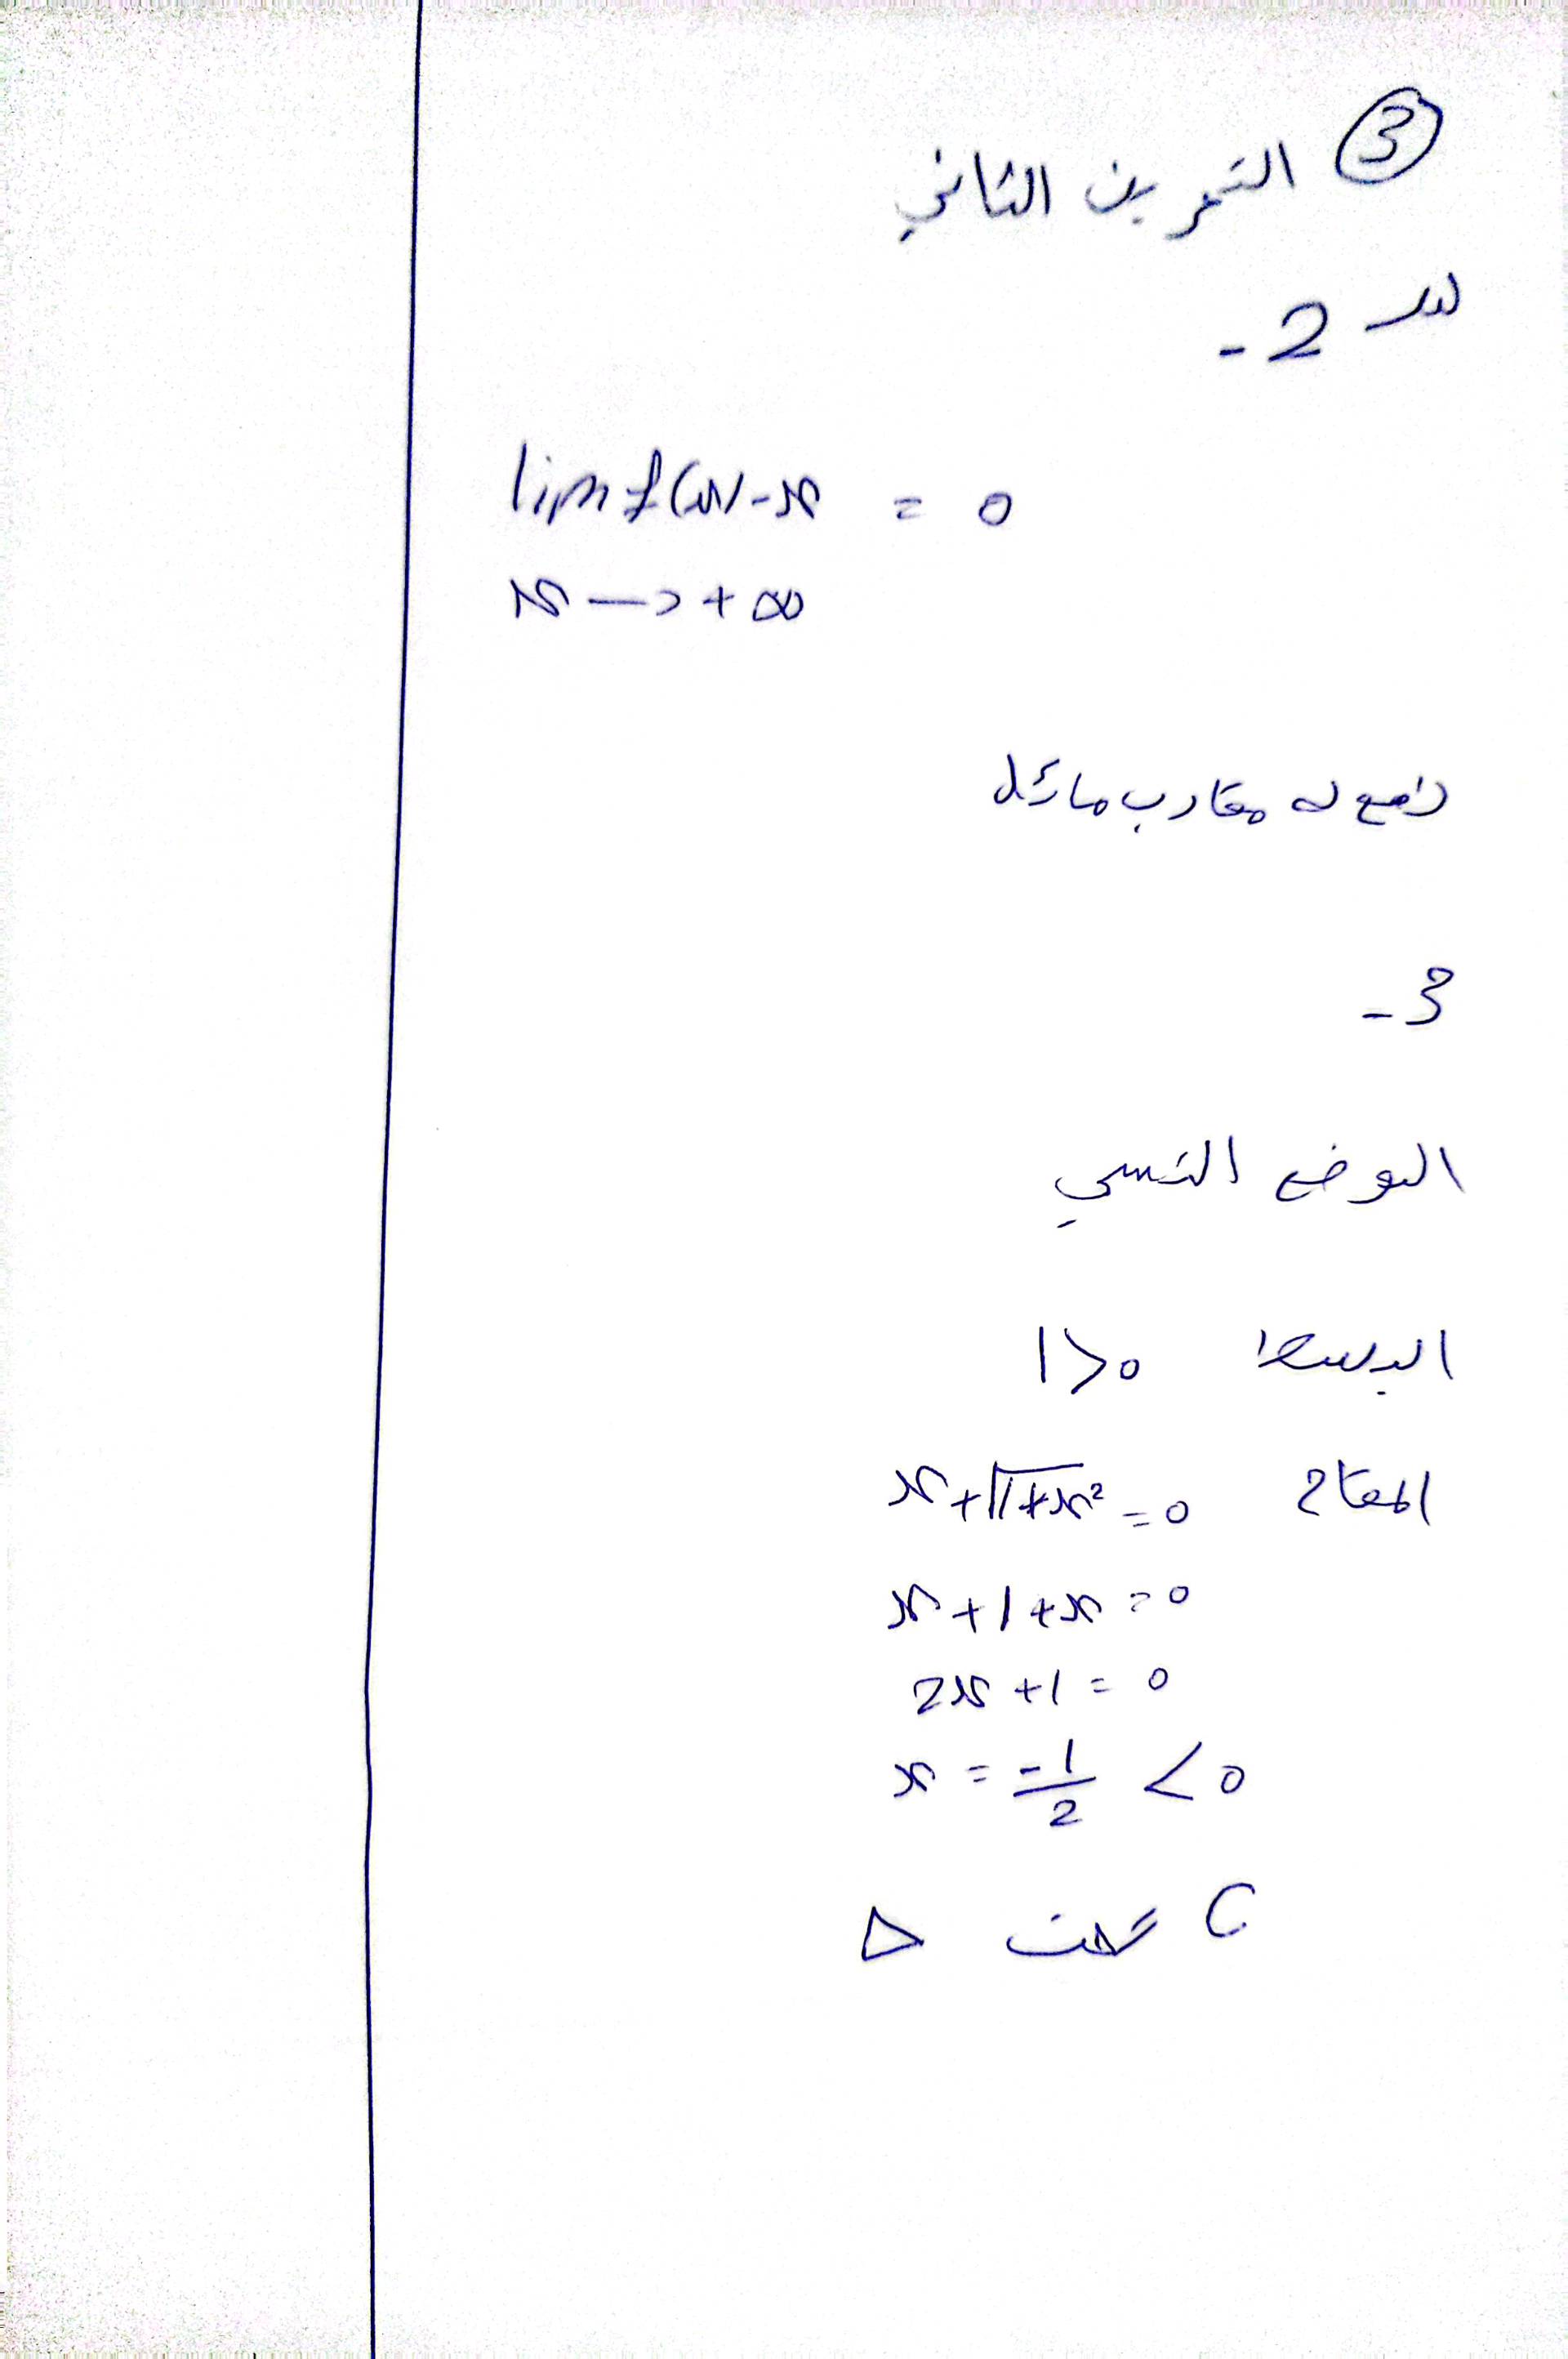 ③ التمرين الثاني
2 -
lim f(x)-x = 0
x → +∞
نعم له مقارب مائل
3 -
الوضع النسبي
البسط 1>0
المقام x+√1+x² =0
x+1+x=0
2x+1=0
x = -1/2 <0
C تحت Δ